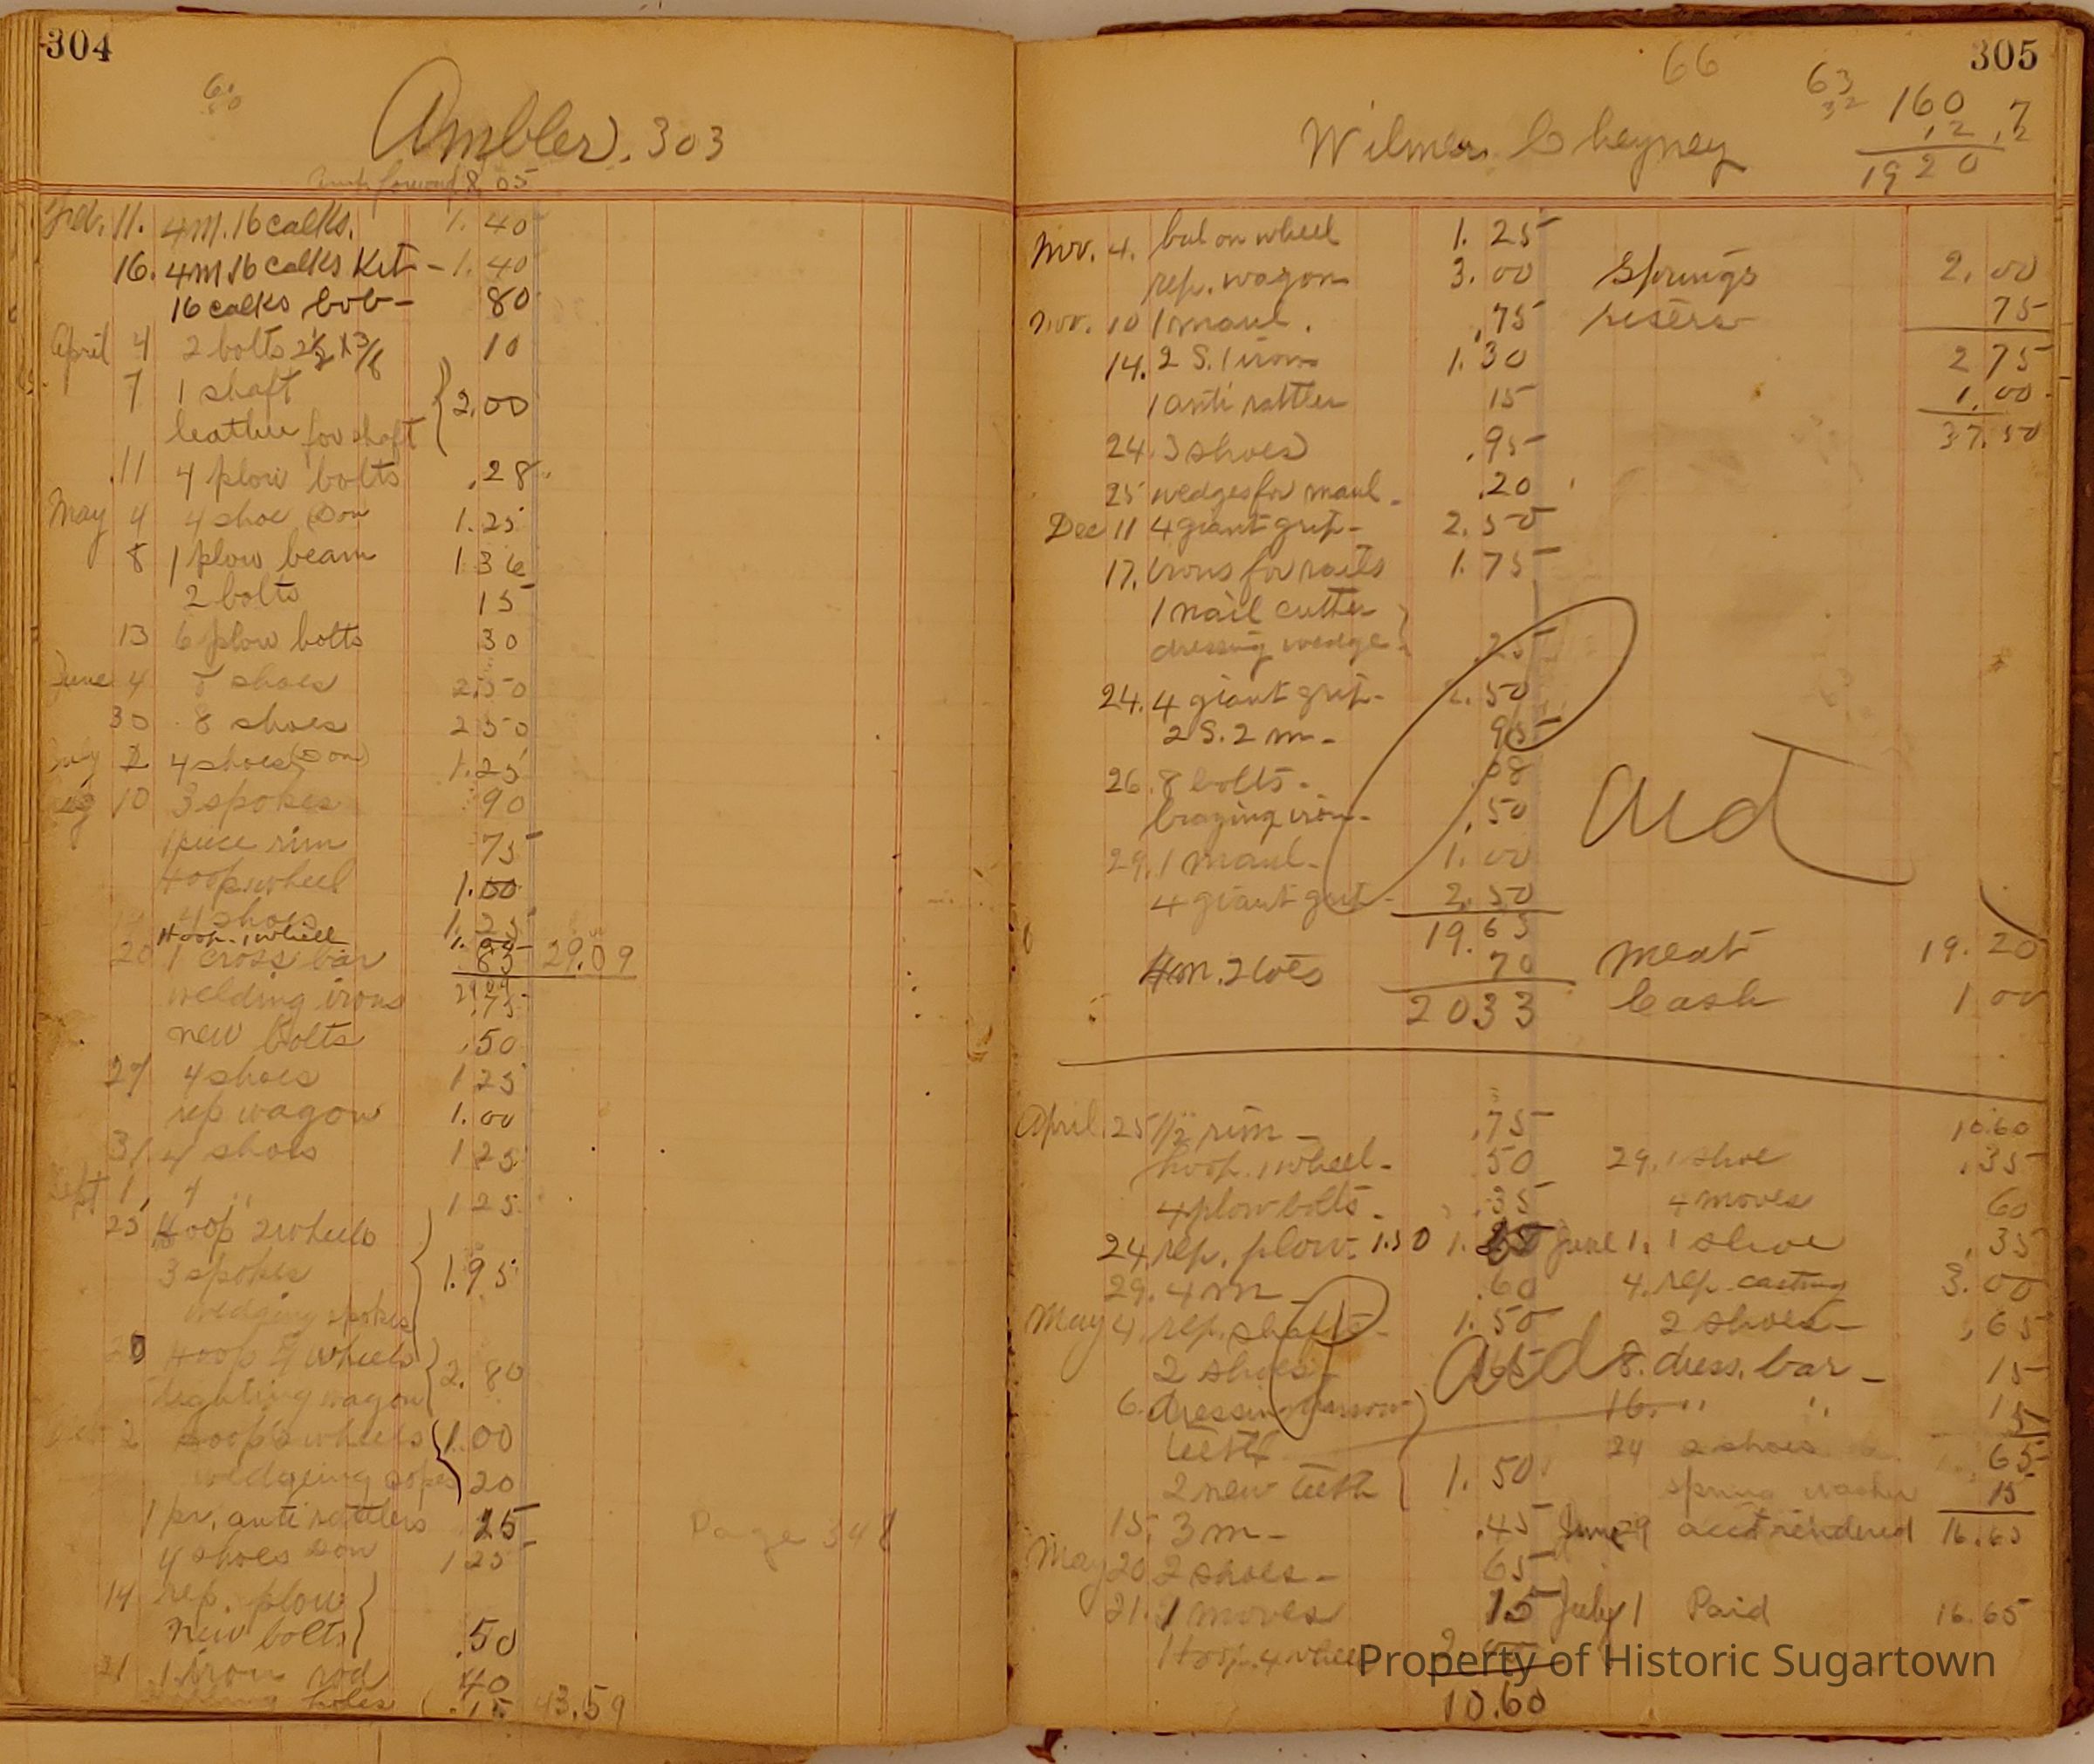 304
60
Ambler. 303
forward 8.05
Feb. 11. 4 m. 16 calks. 1.40
16. 4 m 16 calks Kit - 1.40
16 calks bob - 80
April 4 2 bolts 2½ x 3/8 10
7 1 shaft
leather for shaft } 2.00
11 4 plow bolts .28
May 4 4 shoe (Don 1.25
8 1 plow beam 1 36
2 bolts 15
13 6 plow bolts 30
June 4 8 shoes 2.50
30 8 shoes 2 50
July 2 4 shoes (Don) 1.25
Aug 10 3 spokes 90
1 piece rim 75
Hoop wheel 1.00
4 shoes 1.25
Hoop. 1 wheel 1.00
20 1 cross bar 85 29.09
welding irons .75
new bolts .50
27 4 shoes 1 25
rep wagon 1.00
31 4 shoes 1 25
Sept 1, 4 " 1 25
25 Hoop 2 wheels
3 spokes } 1.95
wedging spokes
Hoop 4 wheels } 2.80
tighting wagon
2 Hoop 2 wheels 1.00
20
1 pr. anti rattlers 25
4 shoes Don 1 25
14 rep. plow
new bolts } .50
31 1 iron rod 40
holes .15 43.59
Page 348
305
66
63
32
160 7
12 .12
1920
Wilmer Cheyney
Nov. 4. bul on wheel 1.25
rep. wagon 3.00 Springs 2.00
Nov. 10 1 maul. .75 75
14. 2 S. 1 iron 1.30 2 75
1 anti rattler 15 1.00
24. 3 shoes .95 37.50
25 wedges for maul - .20
Dec 11 4 giant grip - 2.50
17. irons for 1.75
1 nail cutter
dressing wedge } .25
24. 4 giant grip - 2.50
2 S. 2 m - 95
26. 8 bolts -
brazing iron - .50
29. 1 maul - 1.00
4 giant grip - 2.50
19.63
4 m. 2 toes 70 meat 19.20
2033 Cash 1 00
April 25 1/2 rim - .75 10.60
hoop. 1 wheel - 50 29. 1 shoe .35
4 plow bolts - .35 4 moves 60
24. rep. plow. 1.50 June 1. 1 shoe .35
29. 4 m - .60 4. rep. casting 3.00
May 4. rep. shafts - 1.50 2 shoes - .65
2 shoes - 65 8. dress. bar - 15
6. dressing 16. " " 15
teeth 24 2 shoes 65
2 new teeth 1.50 spring washer 15
15. 3 m - .45 June 29 acct rendered 16.65
May 20 2 shoes - 65
21. 1 moves 15 July 1 Paid 16.65
Hoop. 4 wheel
10.60
Property of Historic Sugartown